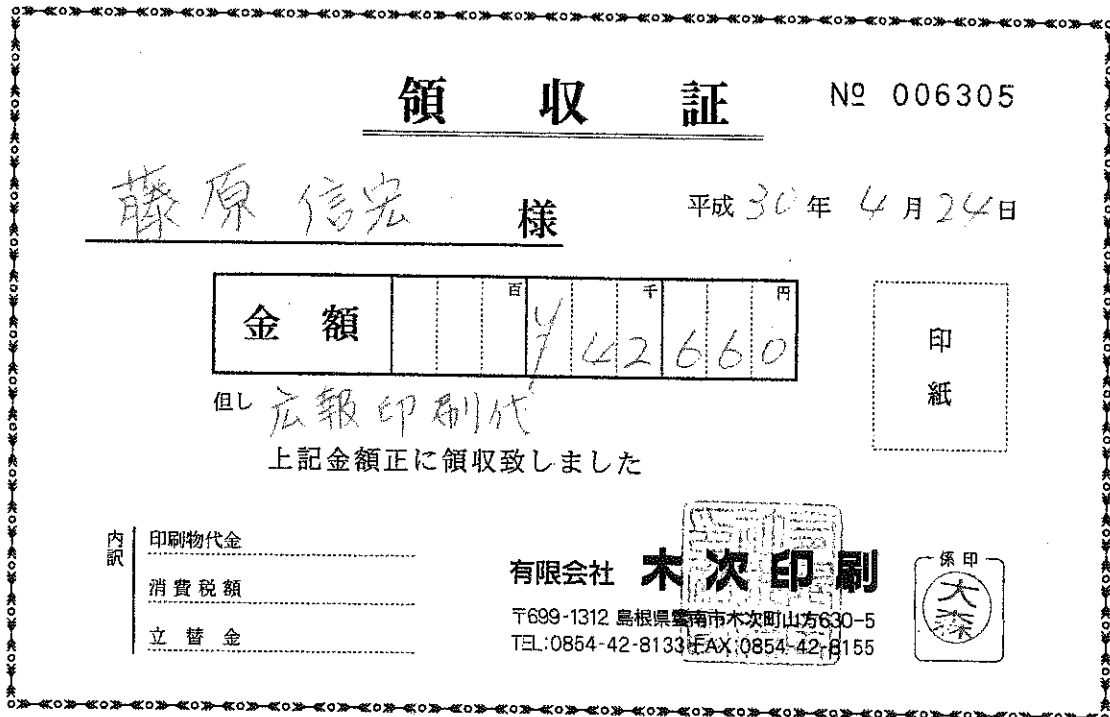 領収証 № 006305
藤原信宏 様 平成30年4月24日
金額 百 千 円
¥42660
印紙
但し 広報印刷代
上記金額正に領収致しました
内訳
印刷物代金
消費税額
立替金
有限会社 木次印刷
〒699-1312 島根県雲南市木次町山方630-5
TEL:0854-42-8133 FAX:0854-42-8155
係印
大森